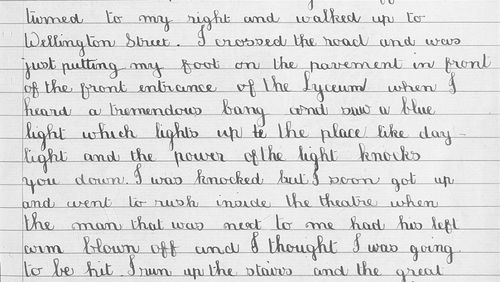 turned to my right and walked up to
Wellington Street. I crossed the road and was
just putting my foot on the pavement in front
of the front entrance of the Lyceum when I
heard a tremendous bang and saw a blue
light which lights up the place like day-
light and the power of the light knocks
you down. I was knocked but I soon got up
and went to rush inside the theatre when
the man that was next to me had his left
arm blown off and I thought I was going
to be hit. I run up the stairs and the great